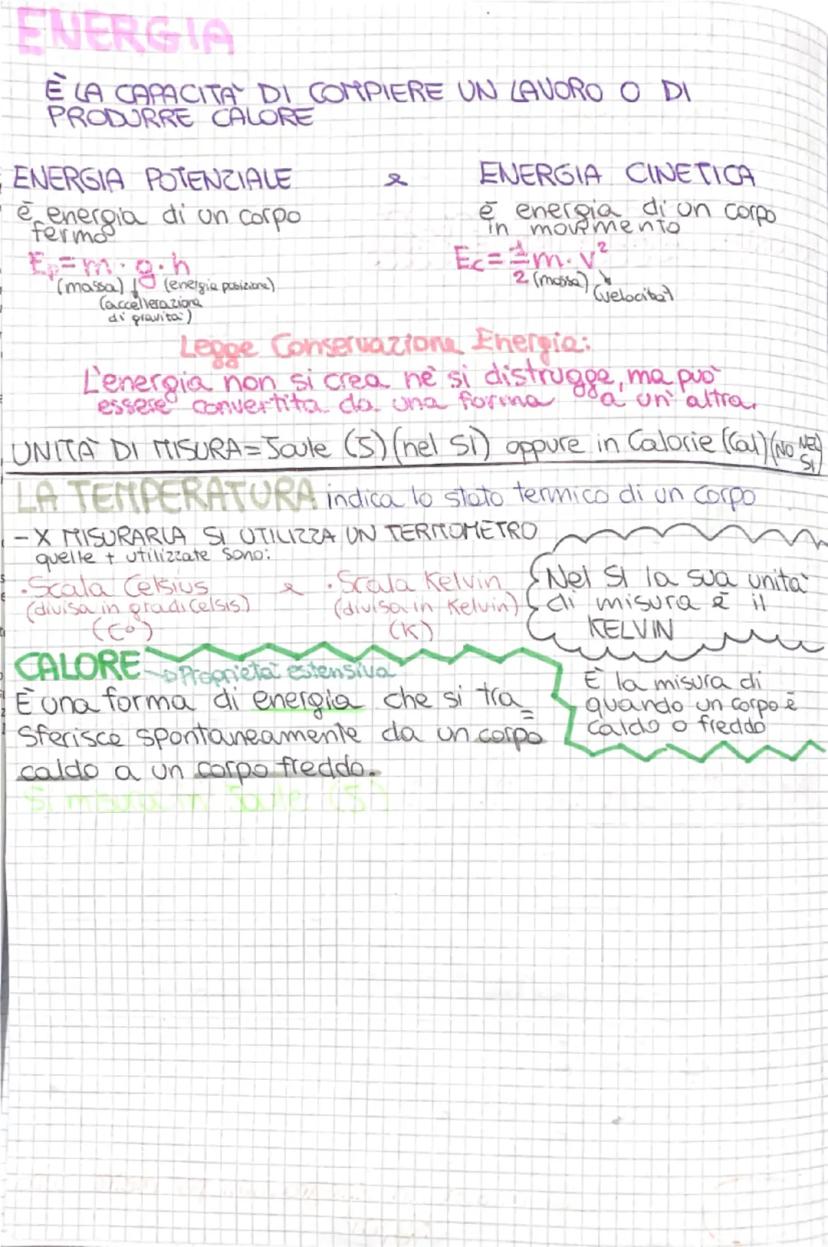 ENERGIA
È LA CAPACITA' DI COMPIERE UN LAVORO O DI
PRODURRE CALORE
ENERGIA POTENZIALE e ENERGIA CINETICA
è energia di un corpo
fermo
Ep = m · g · h
(massa) ↓ (energia posizione)
(accellerazione
di gravità)
è energia di un corpo
in movimento
Ec = 1/2 m · v²
(massa) (velocità)
Legge Conservazione Energia:
L'energia non si crea nè si distrugge, ma può
essere convertita da una forma a un'altra.
UNITÀ DI MISURA = Joule (J) (nel SI) oppure in Calorie (Cal) (NO NEL SI)
LA TEMPERATURA indica lo stato termico di un corpo
- X MISURARLA SI UTILIZZA UN TERMOMETRO
quelle + utilizzate sono:
· Scala Celsius e · Scala Kelvin
(divisa in gradi celsis) (divisa in Kelvin)
(C°) (K)
Nel SI la sua unità
di misura è il
KELVIN
È la misura di
quando un corpo è
caldo o freddo
CALORE → Proprietà estensiva
È una forma di energia che si tra=
sferisce spontaneamente da un corpo
caldo a un corpo freddo.
Si misura in Joule (J)